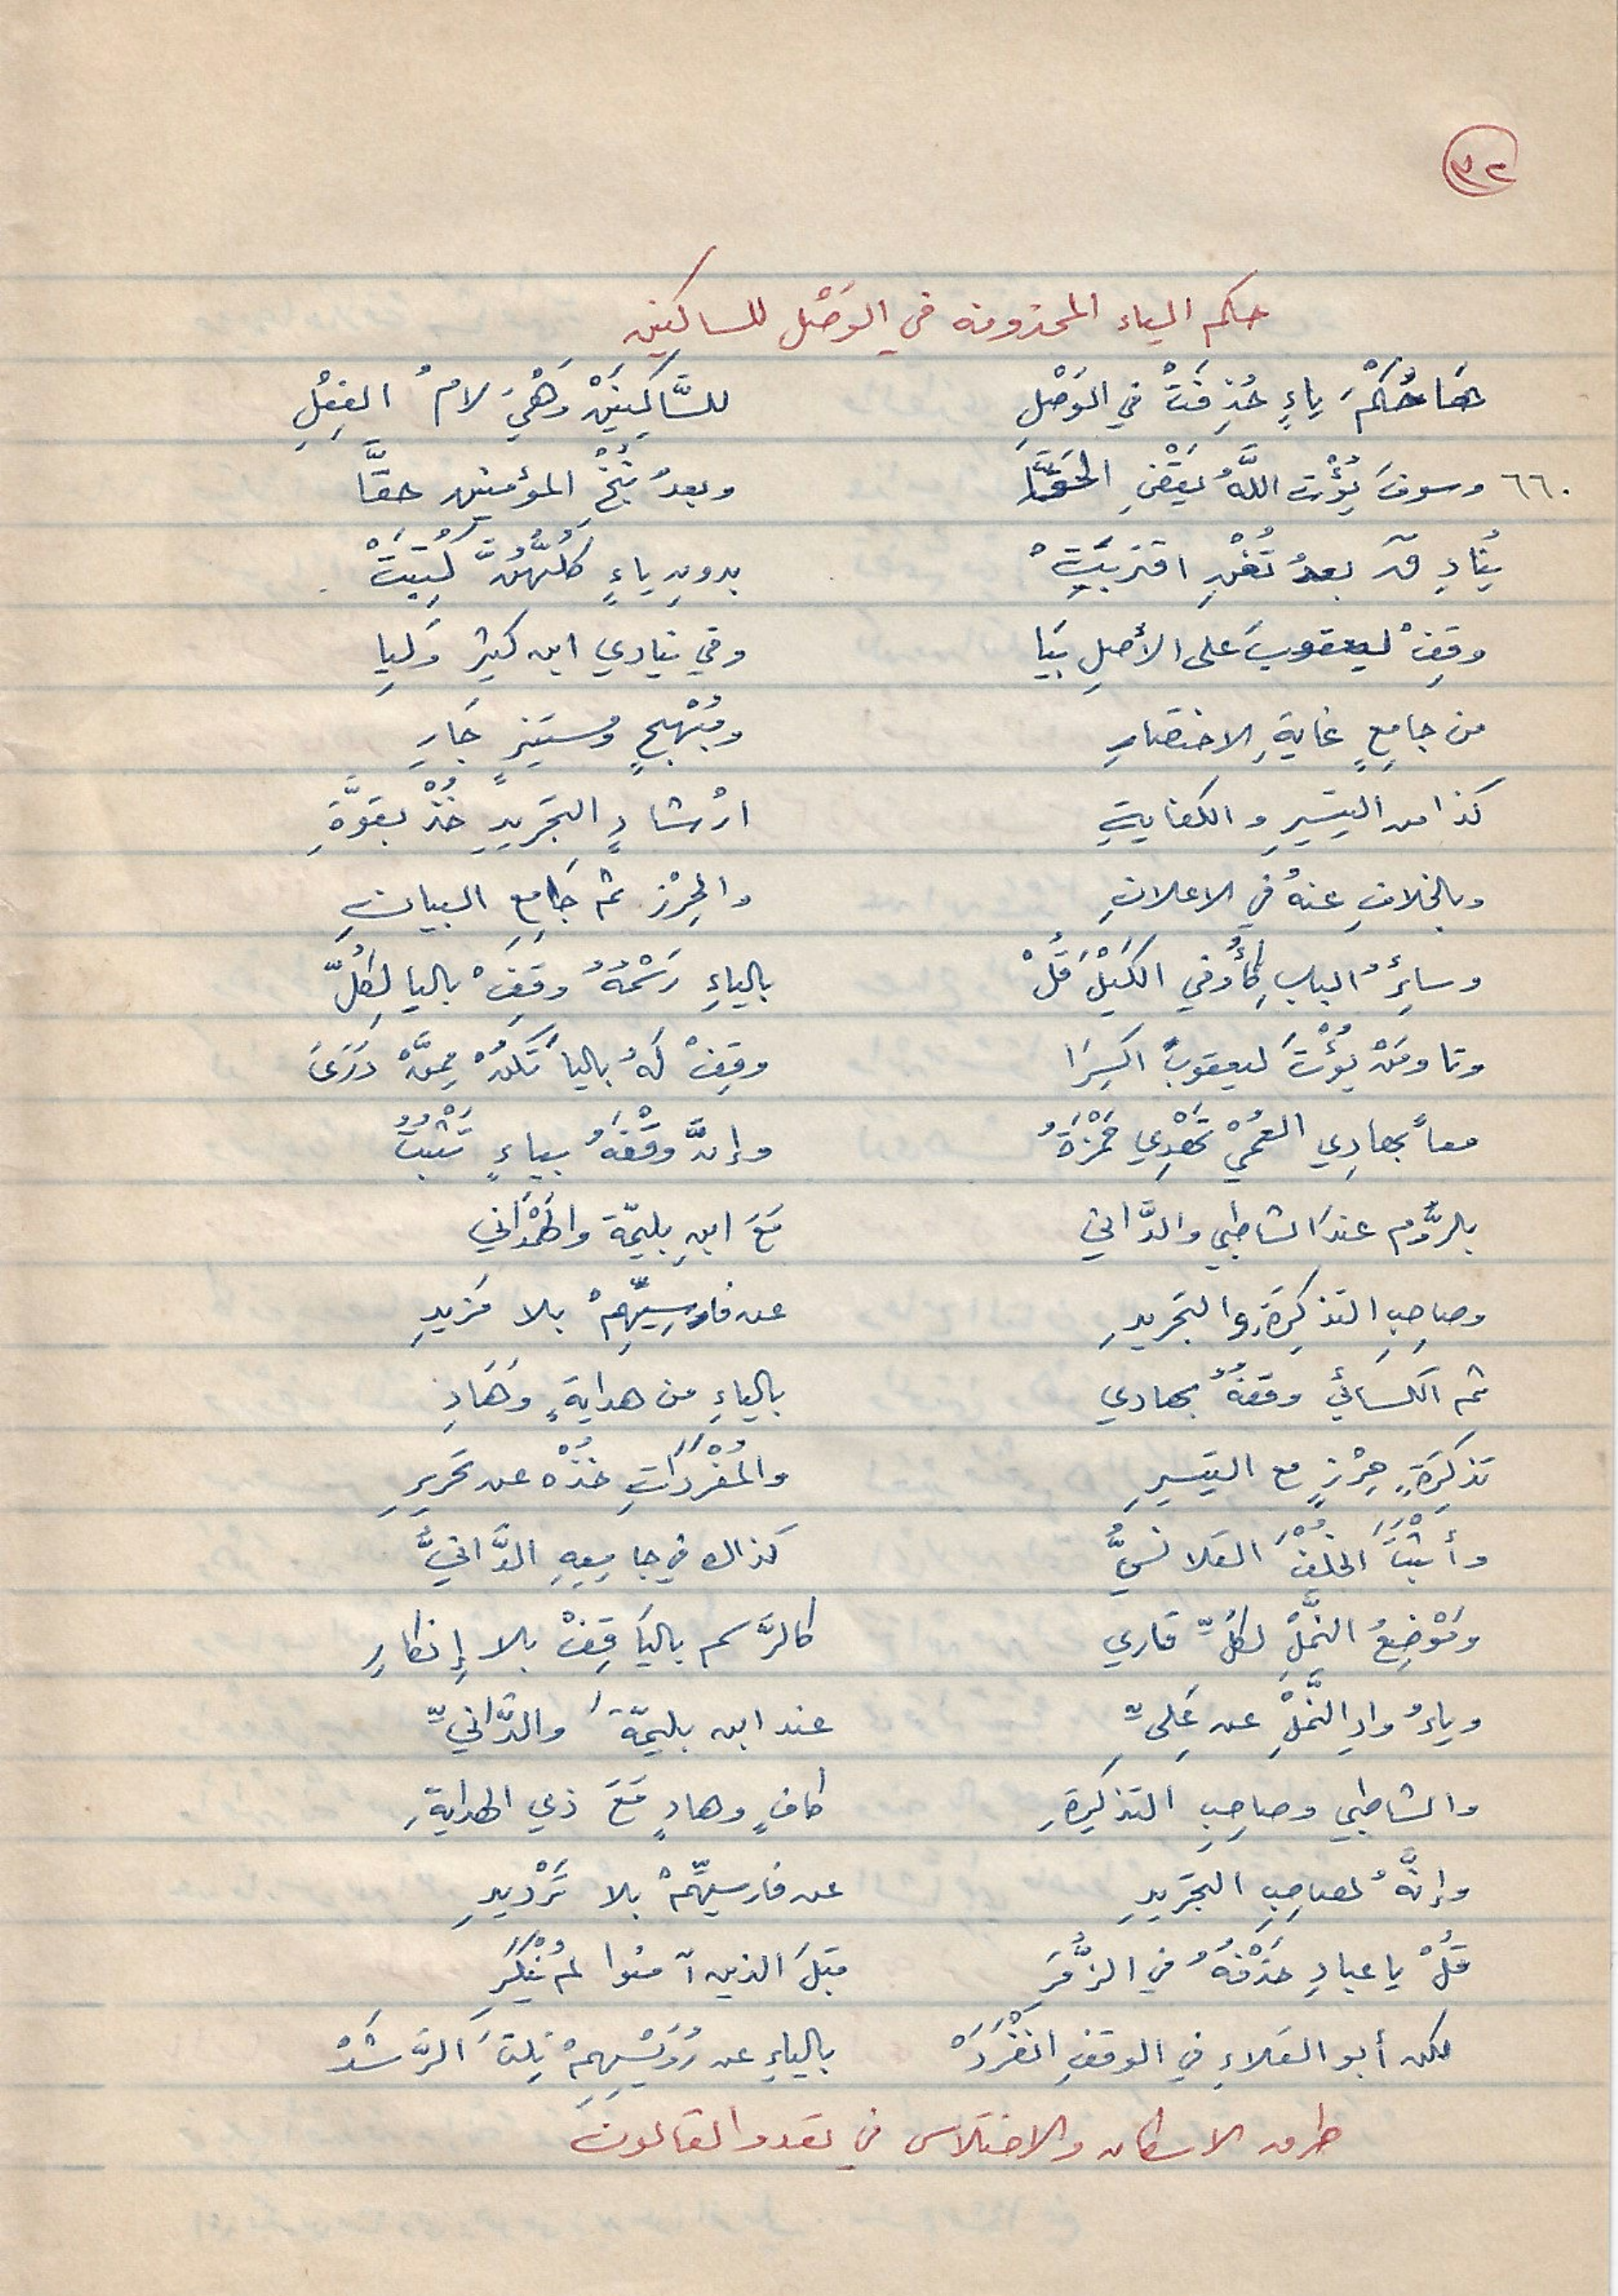 ٣٢
حكم الياء المحذوفة في الوَصْل للساكنين
هَا حُكْمُ ياءٍ حُذِفَتْ في الوَصْلِ للسَّاكِنَيْنْ وَهْيَ لامُ الفِعْلِ
٦٦٠ وسوفَ يُؤْتِ اللَّهُ يَقْضِ الحَقَّا وبعدُ نُنْجِ المؤمنين حقَّا
يُنَادِ قۤ بعدُ تُغْنِ اقتربَتْ بدونِ ياءٍ كلُّهُنَّ كُتِبَتْ
وقِفْ ليعقوبَ على الأصلِ بِيَا وفي ينادي ابن كثير وَلِيا
من جامِعٍ غايةِ الاختصارِ ومُبْهِجٍ ومستنيرٍ جَارِ
كذا من التيسيرِ والكفايةِ ارْشادٍ التجريدِ خُذْ بقوَّةِ
وبالخلافِ عنهُ في الاعلانِ والحِرْزِ ثم جَامِعِ البيانِ
وسائِرُ البابِ كأُوفي الكَيْلَ قُلْ بالياءِ رَسْمُهُ وقِفْ باليا لِكُلّ
وتا ومَنْ يُؤْتَ ليعقوبَ اكسِرَا وقِفْ لَهُ باليا تَكُنْ مِمَّنْ دَرَى
معاً بهادِي العُمْيِ تَهْدِي حَمْزَةُ وإنَّ وَقْفَهُ بياءٍ تَثْبُتُ
بالرَّوْمِ عندَ الشاطبي والدَّاني مَعَ ابنِ بليمّة والهَمْدَاني
وصاحِبِ التذكِرَةِ والتجريدِ عن فارسِيِّهِمْ بلا مَزيدِ
ثم الكسائيْ وقفهُ بهادي بالياءِ من هدايةٍ وَهَادِ
تذكِرَةٍ حِرْزٍ مع التيسيرِ والمُفْرَدَاتِ خُذْهُ عن تحريرِ
وأَثْبَتَ الخُلْفَ القلانسيُّ كذاك في جامِعِهِ الدَّانيُّ
ومَوْضِعُ النَّمْلِ لكُلِّ قاري كالرَّسم باليَا قِفْ بلا إنكارِ
وياءُ وادِ النَّمْلِ عن عَلِيِّ عند ابن بليمّةَ والدَّانيِّ
والشاطبي وصاحِبِ التذكِرةِ كافٍ وهادٍ مَعَ ذي الهدايةِ
وإنَّهُ لصاحِبِ التجريدِ عن فارسيِّهِمْ بلا تَرْديدِ
قُلْ يا عبادِ حَذْفُهُ في الزُّمَرِ قبلَ الذين آمنوا لم يُنْكَرِ
لكن أبو العَلاءِ في الوقفِ انْفَرَدْ بالياءِ عن رُوَيْسِهِمْ نِلتَ الرَّشَدْ
طرق الاسكان والاختلاس في تعدوا لقالون